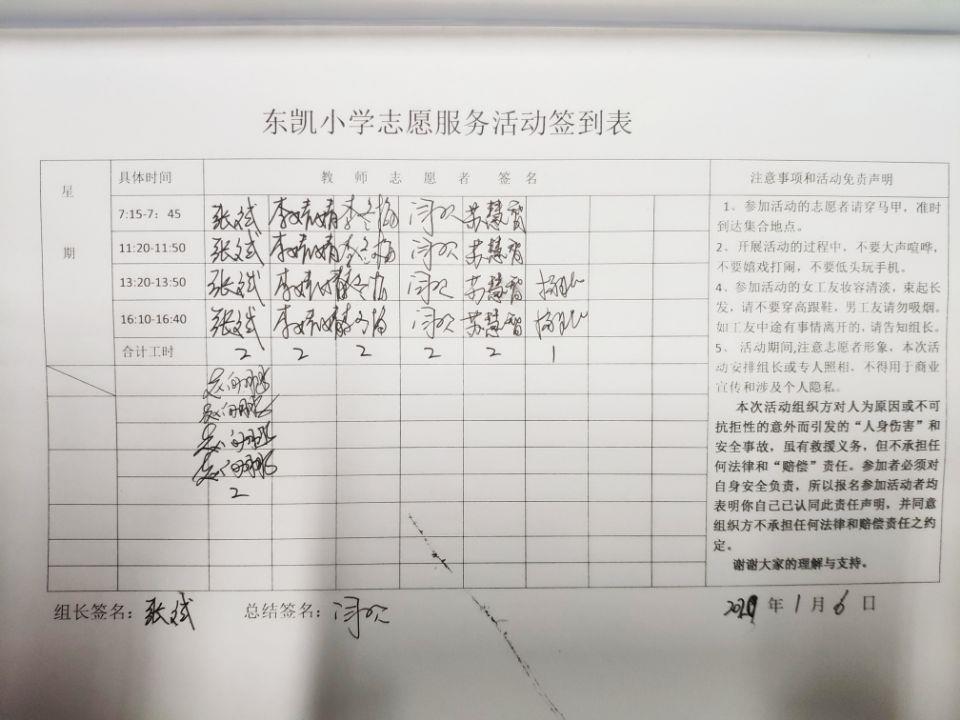 东凯小学志愿服务活动签到表
星期 具体时间 教师志愿者签名 注意事项和活动免责声明
7:15-7：45 张斌 李婧婧 李冬梅 闫欢 苏慧智
11:20-11:50 张斌 李婧婧 李冬梅 闫欢 苏慧智
13:20-13:50 张斌 李婧婧 李冬梅 闫欢 苏慧智
16:10-16:40 张斌 李婧婧 李冬梅 闫欢 苏慧智
合计工时 2 2 2 2 2 1
2
1、参加活动的志愿者请穿马甲，准时
到达集合地点。
2、开展活动的过程中，不要大声喧哗，
不要嬉戏打闹，不要低头玩手机。
4、参加活动的女工友妆容清淡，束起长
发，请不要穿高跟鞋，男工友请勿吸烟。
如工友中途有事情离开的，请告知组长。
5、活动期间,注意志愿者形象，本次活
动安排组长或专人照相，不得用于商业
宣传和涉及个人隐私。
本次活动组织方对人为原因或不可
抗拒性的意外而引发的“人身伤害”和
安全事故，虽有救援义务，但不承担任
何法律和“赔偿”责任。参加者必须对
自身安全负责，所以报名参加活动者均
表明你自己已认同此责任声明，并同意
组织方不承担任何法律和赔偿责任之约
定。
谢谢大家的理解与支持。
组长签名：张斌 总结签名：闫欢 年1月6日